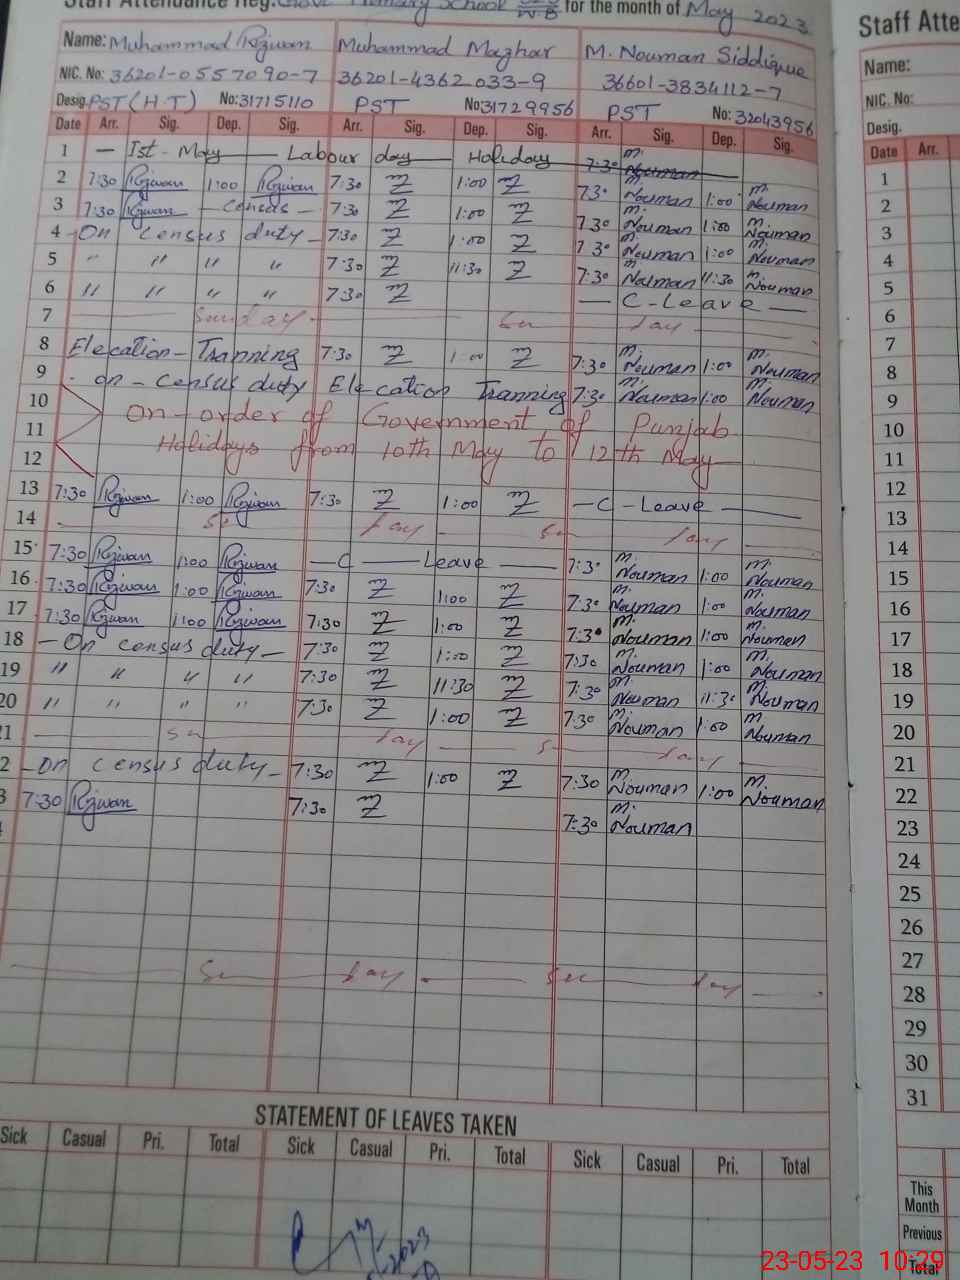 Staff Attendance Reg. Primary School for the month of May 2023
Name: Muhammad Rizwan Muhammad Mazhar M. Nouman Siddique
NIC. No: 36201-0557090-7 36201-4362033-9 36601-3834112-7
Desig. PST (H.T) No: 31715110 PST No: 31729956 PST No: 32043956
Date Arr. Sig. Dep. Sig. Arr. Sig. Dep. Sig. Arr. Sig. Dep. Sig.
1 — Ist - May — Labour day — Holiday 7:30 M. Nouman
2 7:30 Rizwan 1:00 Rizwan 7:30 1:00 7:30 M. Nouman 1:00 M. Nouman
3 7:30 Rizwan - Census - 7:30 1:00 7:30 M. Nouman 1:00 M. Nouman
4 - On census duty - 7:30 1:00 7:30 M. Nouman 1:00 M. Nouman
5 " " " " 7:30 11:30 7:30 M. Nouman 11:30 M. Nouman
6 " " " " 7:30 — C-Leave —
7 Sunday Su day
8 Elecation-Tranning 7:30 1:00 7:30 M. Nouman 1:00 M. Nouman
9 on-census duty Elecation Tranning 7:30 M. Nouman 1:00 M. Nouman
10 On-order of Government of Punjab
11 Holidays from 10th May to 12th May
12
13 7:30 Rizwan 1:00 Rizwan 7:30 1:00 — C-Leave —
14 Su day - Su day
15 7:30 Rizwan 1:00 Rizwan — C — Leave — 7:30 M. Nouman 1:00 M. Nouman
16 7:30 Rizwan 1:00 Rizwan 7:30 1:00 7:30 M. Nouman 1:00 M. Nouman
17 7:30 Rizwan 1:00 Rizwan 7:30 1:00 7:30 M. Nouman 1:00 M. Nouman
18 - On census duty - 7:30 1:00 7:30 M. Nouman 1:00 M. Nouman
19 " " " " 7:30 11:30 7:30 M. Nouman 11:30 M. Nouman
20 " " " " 7:30 1:00 7:30 M. Nouman 1:00 M. Nouman
21 Su day - S day
2 - On census duty - 7:30 1:00 7:30 M. Nouman 1:00 M. Nouman
3 7:30 Rizwan 7:30 7:30 M. Nouman
Su day - Su day
STATEMENT OF LEAVES TAKEN
Sick Casual Pri. Total Sick Casual Pri. Total Sick Casual Pri. Total
2023
Staff Atte
Name:
NIC. No:
Desig.
Date Arr.
1
2
3
4
5
6
7
8
9
10
11
12
13
14
15
16
17
18
19
20
21
22
23
24
25
26
27
28
29
30
31
This
Month
Previous
Total
23-05-23 10:29